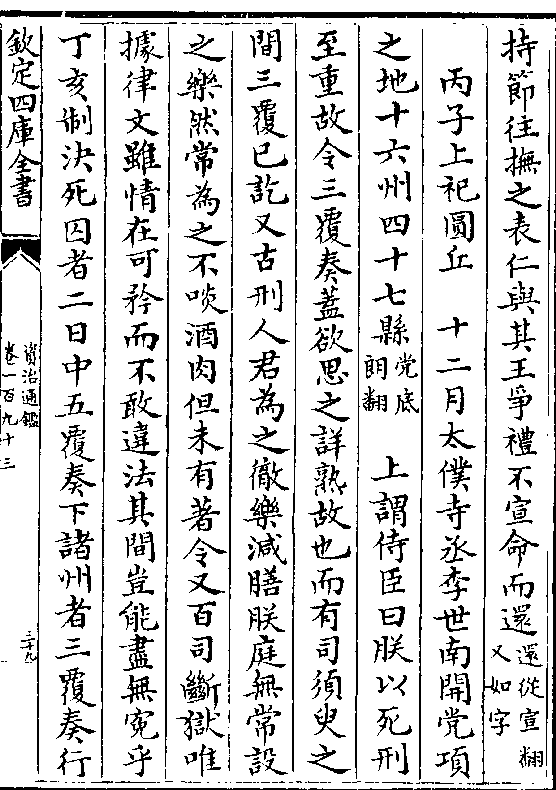 持節往撫之表仁與其王爭禮不宣命而還還從宣翻又如字
丙子上祀圜丘　十二月太僕寺丞李世南開党項
之地十六州四十七縣党底朗翻　上謂侍臣曰朕以死刑
至重故令三覆奏蓋欲思之詳熟故也而有司須臾之
間三覆已訖又古刑人君為之徹樂減膳朕庭無常設
之樂然常為之不啖酒肉但未有著令又百司斷獄唯
據律文雖情在可矜而不敢違法其間豈能盡無冤乎
丁亥制決死囚者二日中五覆奏下諸州者三覆奏行
欽定四庫全書
資治通鑑
卷一百九十三
三十九